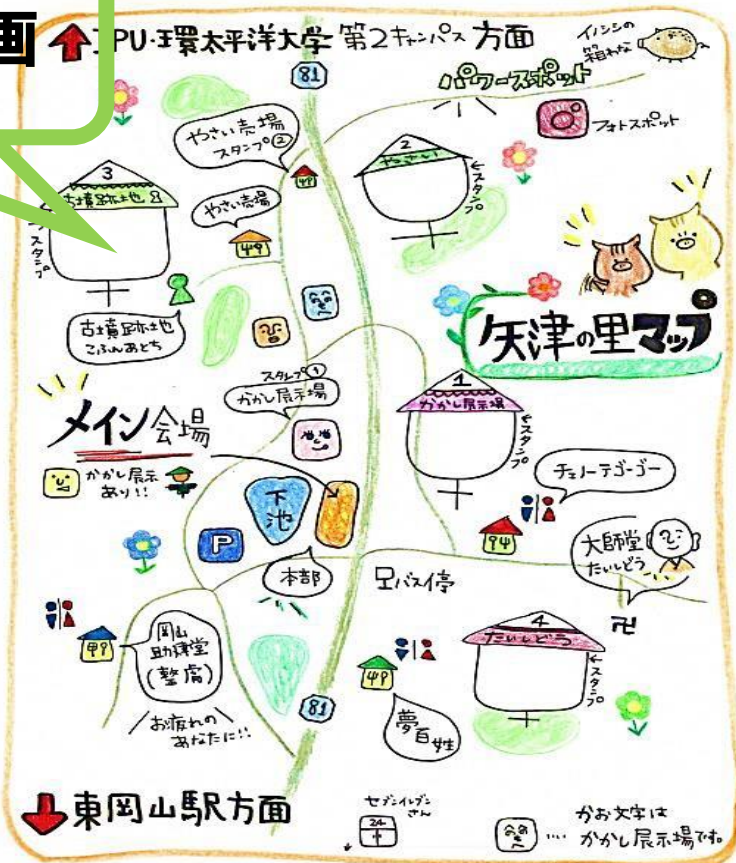 画
IPU・環太平洋大学 第2キャンパス 方面
イノシシの
箱わな
81
パワースポット
フォトスポット
やさい売場
スタンプ②
2
やさい
←スタンプ
3
古墳跡地
スタンプ
やさい売場
古墳跡地
こふんあとち
矢津の里マップ
スタンプ①
かかし展示場
1
かかし展示場
←スタンプ
メイン会場
かかし展示
あり!!
下池
P
本部
バス停
大師堂
たいしどう
卍
岡山
(整膚)
お疲れの
あなたに!!
4
たいしどう
←スタンプ
夢百姓
81
東岡山駅方面
セブンイレブン
さん
24
かお文字は
かかし展示場です。